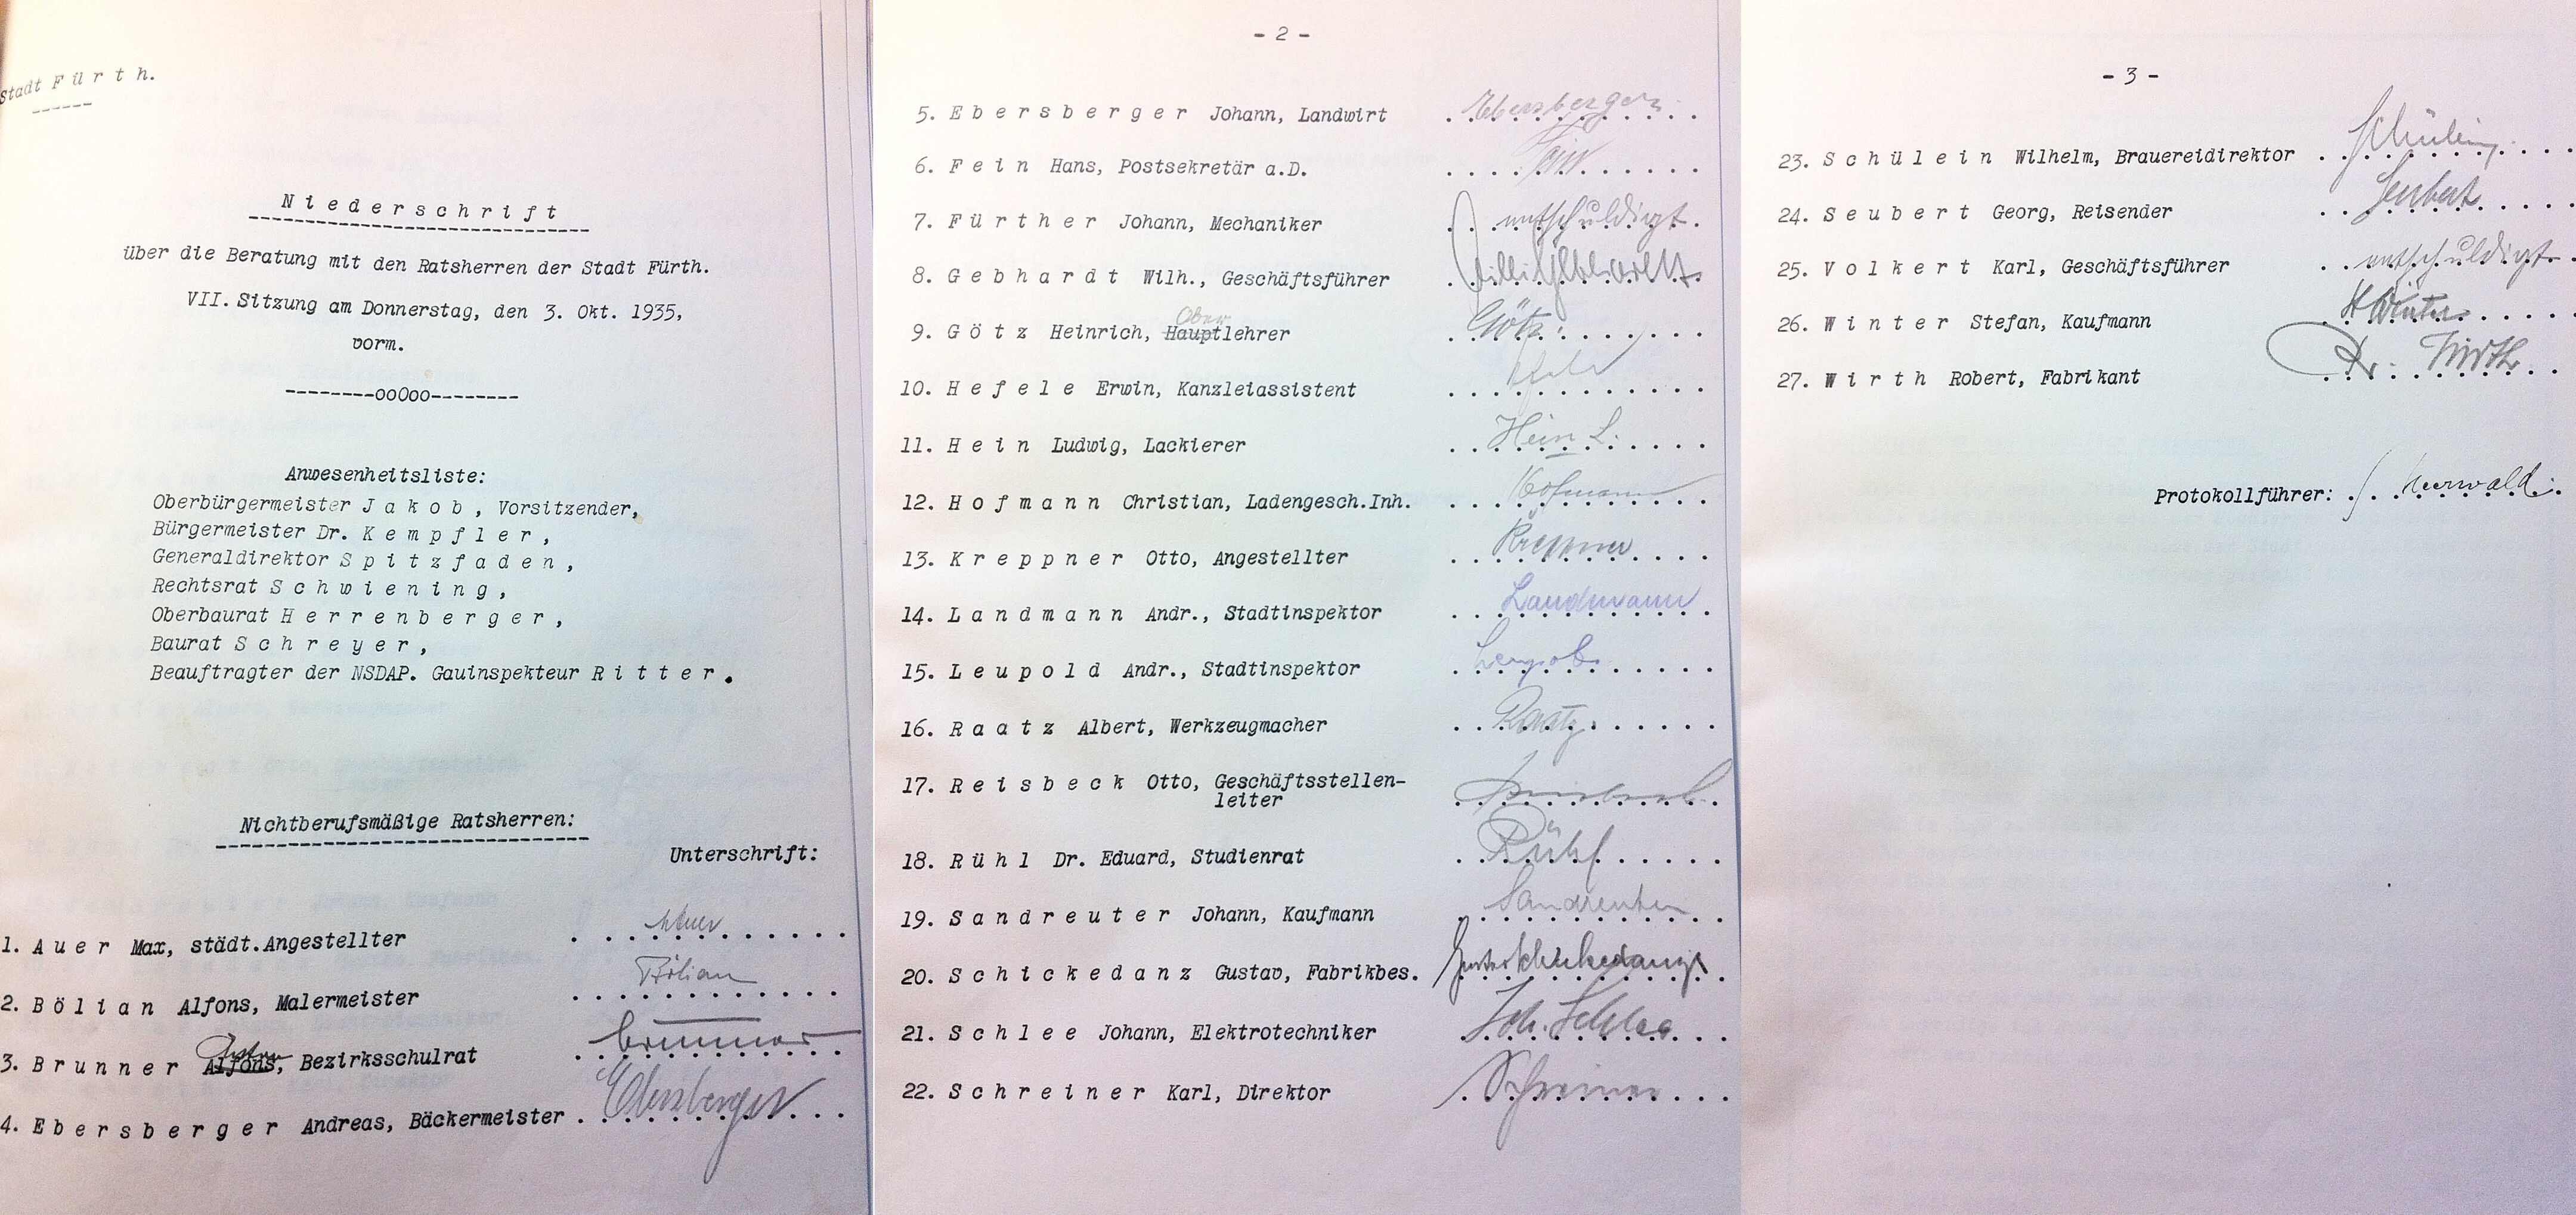 Stadt Fürth.
Niederschrift
über die Beratung mit den Ratsherren der Stadt Fürth.
VII. Sitzung am Donnerstag, den 3. Okt. 1935,
vorm.
--------ooOoo--------
Anwesenheitsliste:
Oberbürgermeister Jakob, Vorsitzender,
Bürgermeister Dr. Kempfler,
Generaldirektor Spitzfaden,
Rechtsrat Schwiening,
Oberbaurat Herrenberger,
Baurat Schreyer,
Beauftragter der NSDAP. Gauinspekteur Ritter.
Nichtberufsmäßige Ratsherren:
Unterschrift:
1. Auer Max, städt.Angestellter Auer
2. Bölian Alfons, Malermeister Bölian
3. Brunner Alfons, Bezirksschulrat Brunner
4. Ebersberger Andreas, Bäckermeister Ebersberger
- 2 -
5. Ebersberger Johann, Landwirt Ebersberger
6. Fein Hans, Postsekretär a.D. Fein
7. Fürther Johann, Mechaniker entschuldigt.
8. Gebhardt Wilh., Geschäftsführer Willi Gebhardt
Ober
9. Götz Heinrich, Hauptlehrer Götz
10. Hefele Erwin, Kanzleiassistent
11. Hein Ludwig, Lackierer Hein L.
12. Hofmann Christian, Ladengesch.Inh. Hofmann
13. Kreppner Otto, Angestellter Kreppner
14. Landmann Andr., Stadtinspektor Landmann
15. Leupold Andr., Stadtinspektor Leupold
16. Raatz Albert, Werkzeugmacher Raatz
17. Reisbeck Otto, Geschäftsstellen-
leiter Reisbeck
18. Rühl Dr. Eduard, Studienrat Rühl
19. Sandreuter Johann, Kaufmann Sandreuter
20. Schickedanz Gustav, Fabrikbes. Gustav Schickedanz
21. Schlee Johann, Elektrotechniker Joh. Schlee
22. Schreiner Karl, Direktor Schreiner
- 3 -
23. Schülein Wilhelm, Brauereidirektor Schülein
24. Seubert Georg, Reisender Seubert
25. Volkert Karl, Geschäftsführer entschuldigt
26. Winter Stefan, Kaufmann St Winter
27. Wirth Robert, Fabrikant Wirth
Protokollführer: